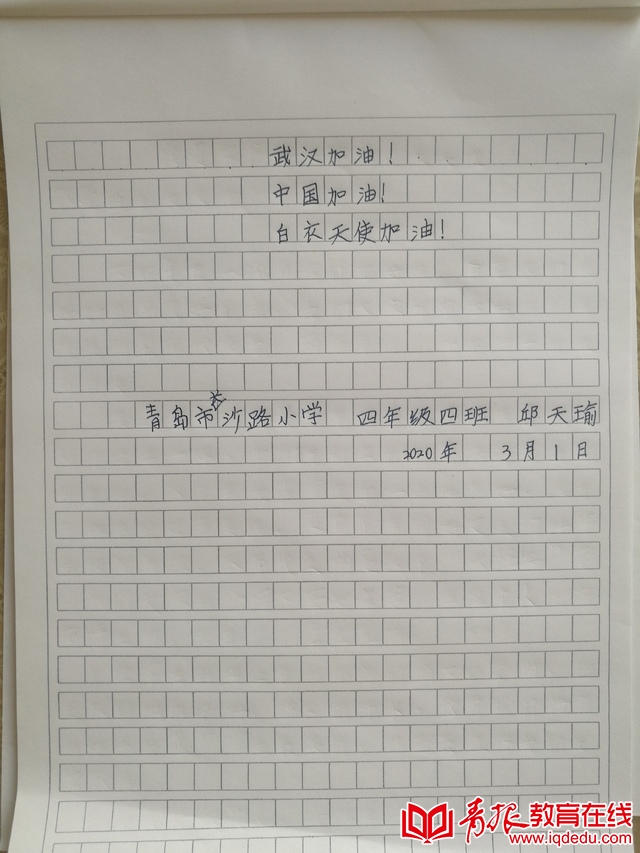 武汉加油！
中国加油！
白衣天使加油！
青岛市长沙路小学 四年级四班 邱天瑜
2020年 3月1日
青报教育在线
www.iqdedu.com